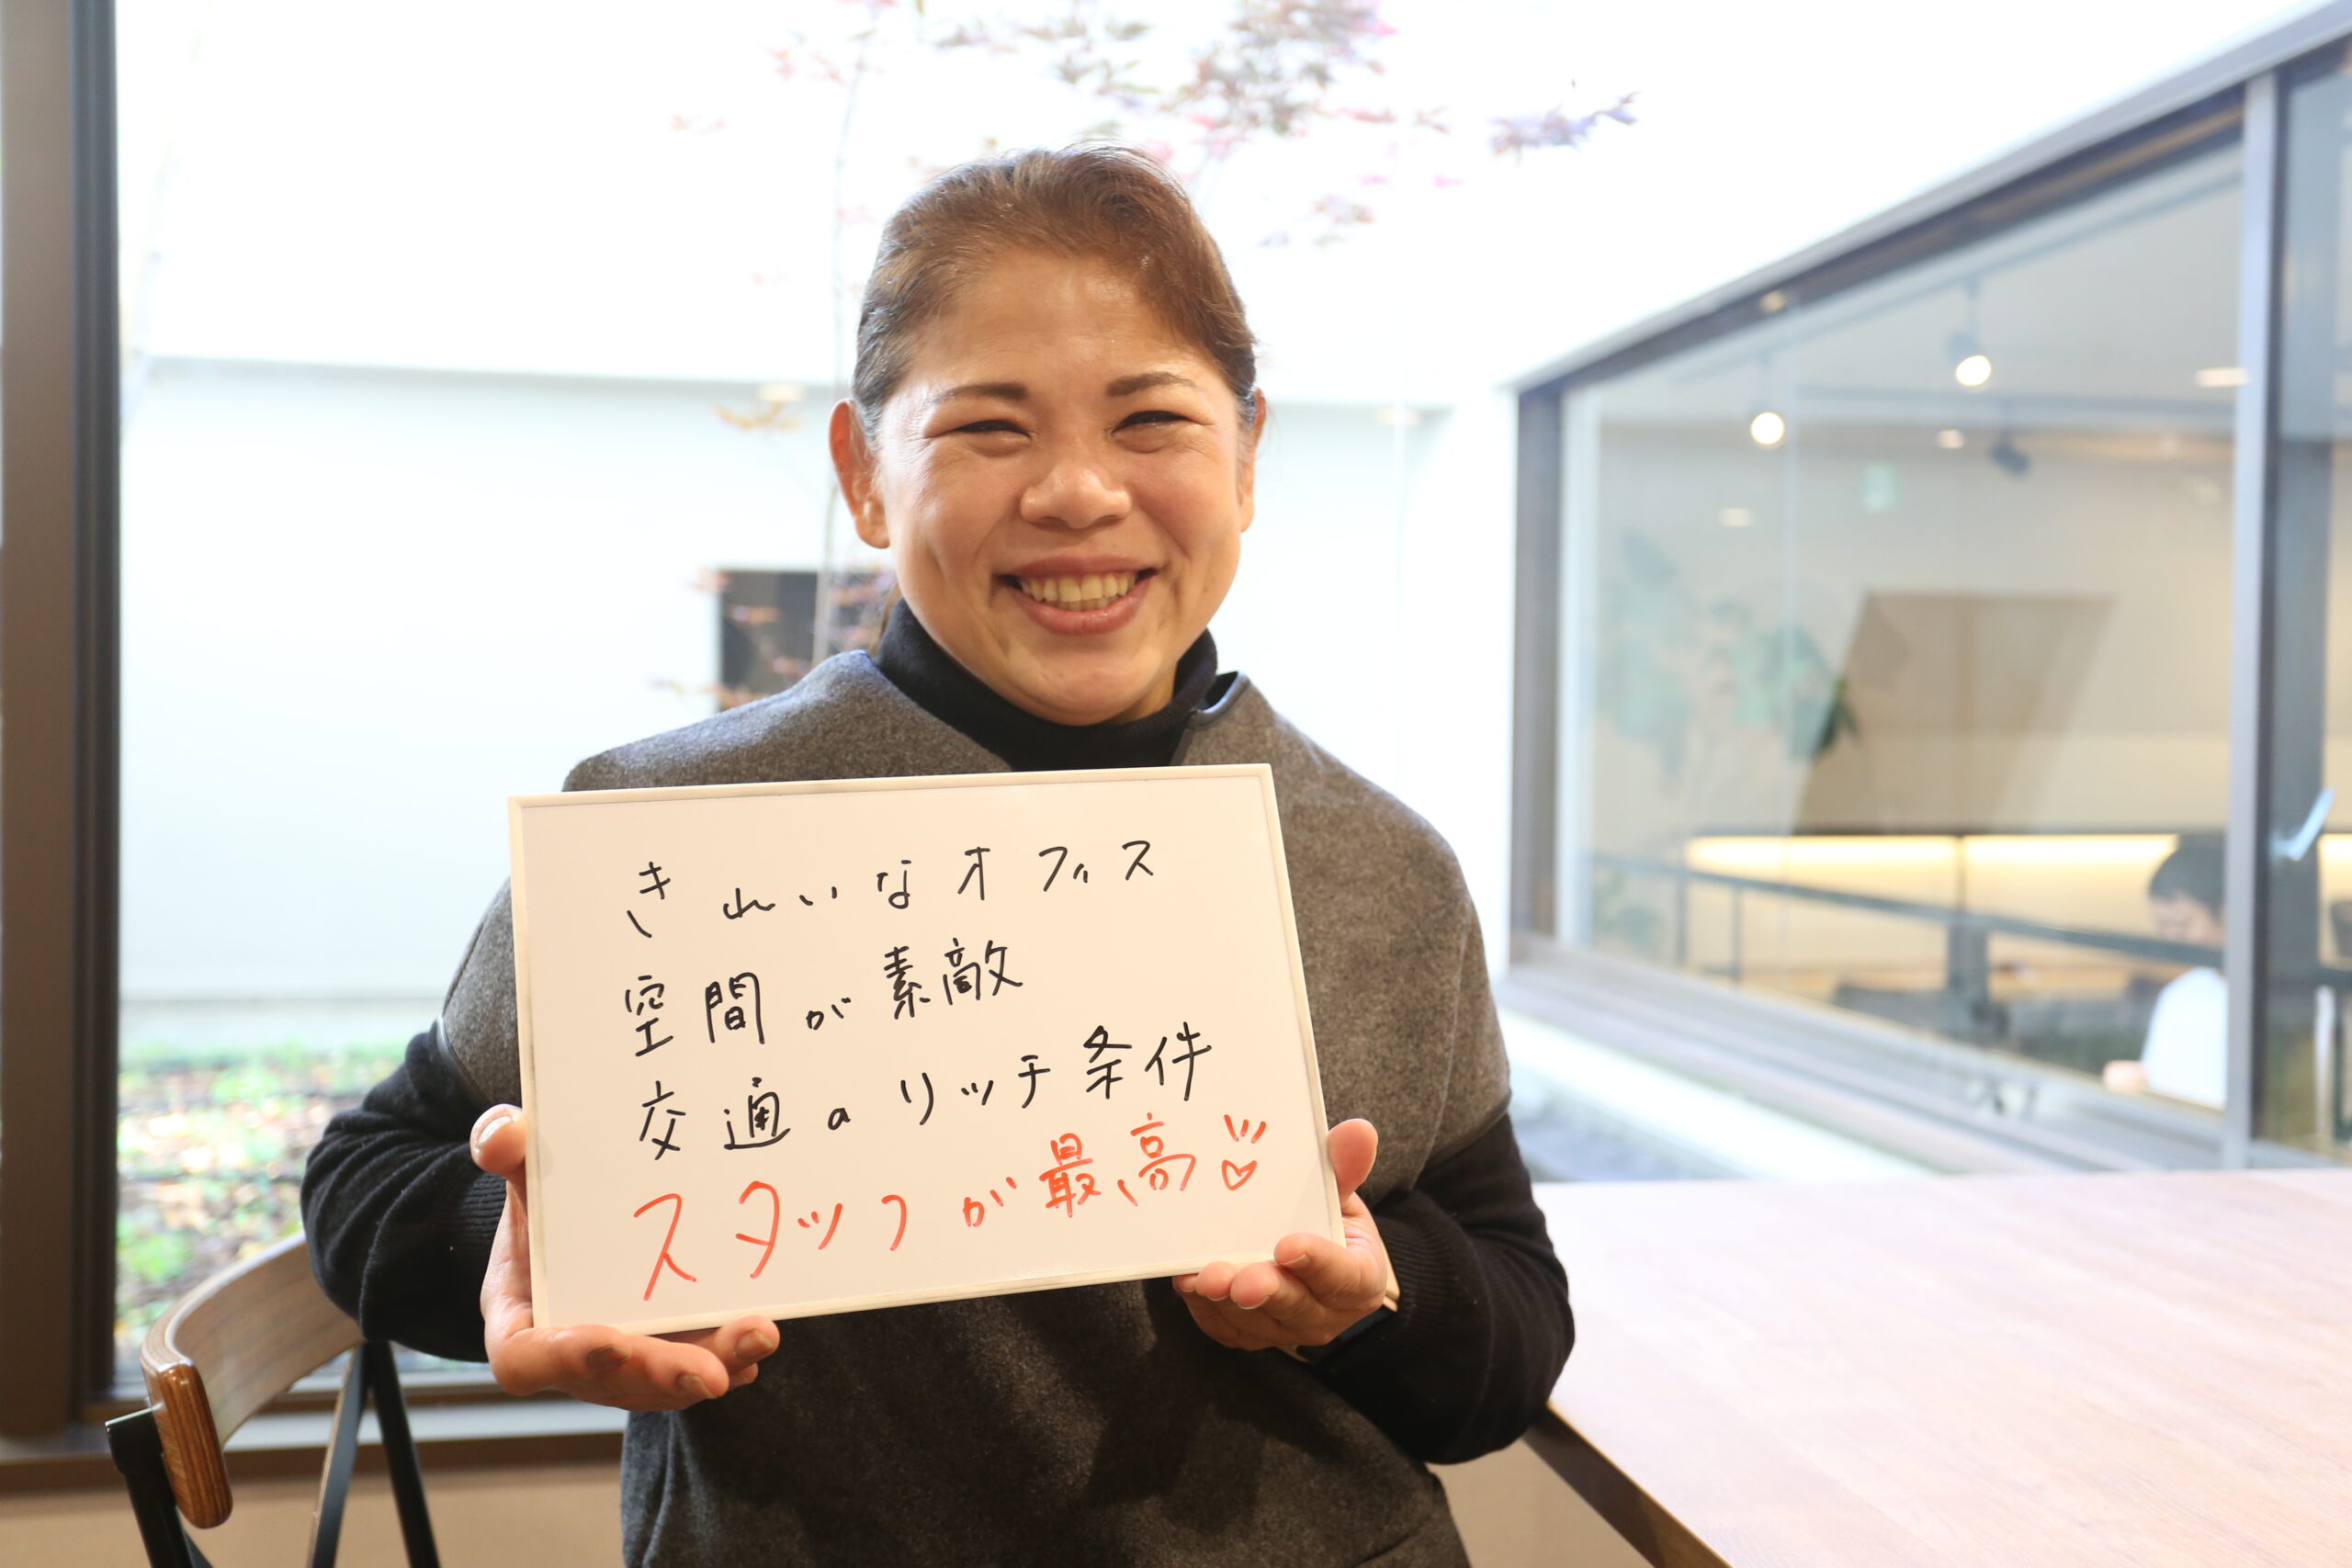 きれいなオフィス
空間が素敵
交通のリッチ条件
スタッフが最高♡